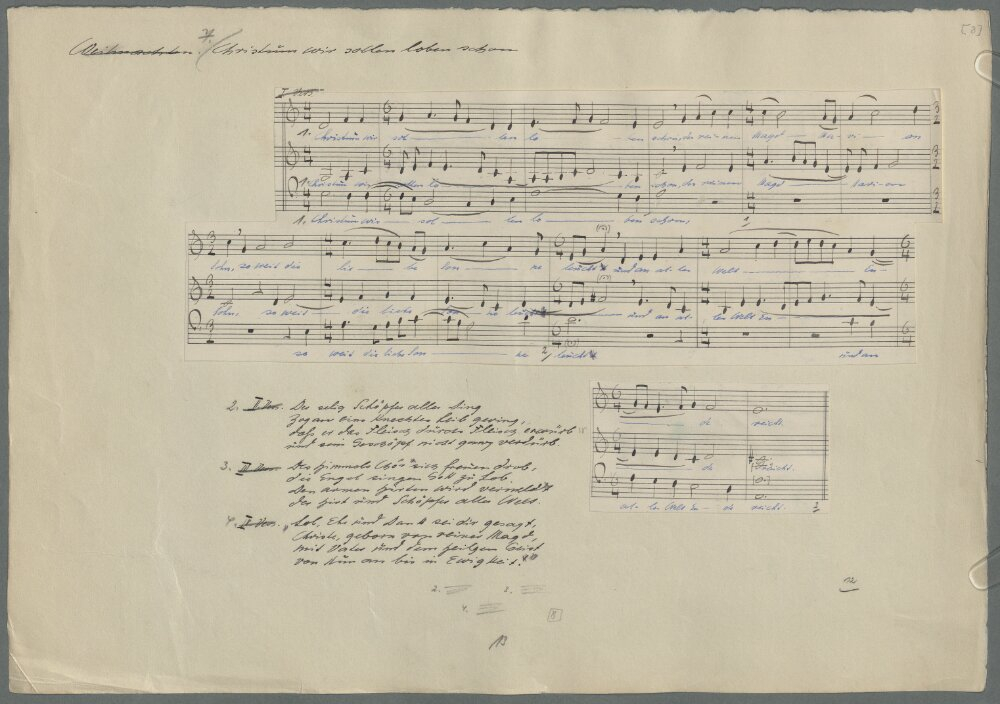 [8]
Weihnachten. 7./ Christum wir sollen loben schon
I. Vers
1. Christum wir sol — len lo — en schon, der reinen Magd — Ma-ri — en
1. Christum wir sollen lo — ben schon, der reinen Magd — Mari-en
1. Christum wir — sol — len lo — ben schon,
Sohn, so weit die lie — be Son — ne leucht und an al-len Welt — En-
Sohn, so weit — die liebe Son — ne leucht — und an al- len Welt En —
so weit die liebe Son — ne leucht und an
— de reicht
— de reicht.
al-len Welt En — de reicht.
2. II. Vers. Der selig Schöpfer aller Ding
zog an eins Knechtes Leib gering,
daß er das Fleisch durchs Fleisch erwürb
und sein Geschöpf nicht ganz verdürb.
3. III. Vers Des Himmels Chör sich freuen drob,
die Engel singen Gott zu Lob.
Den armen Hirten wird vermeldt
der Hirt und Schöpfer aller Welt.
4. Vers. Lob, Ehr und Dank sei dir gesagt,
Christe, geborn von reiner Magd,
mit Vater und dem heilgen Geist
von nun an bis in Ewigkeit.
2. 3.
4.
8
12
13